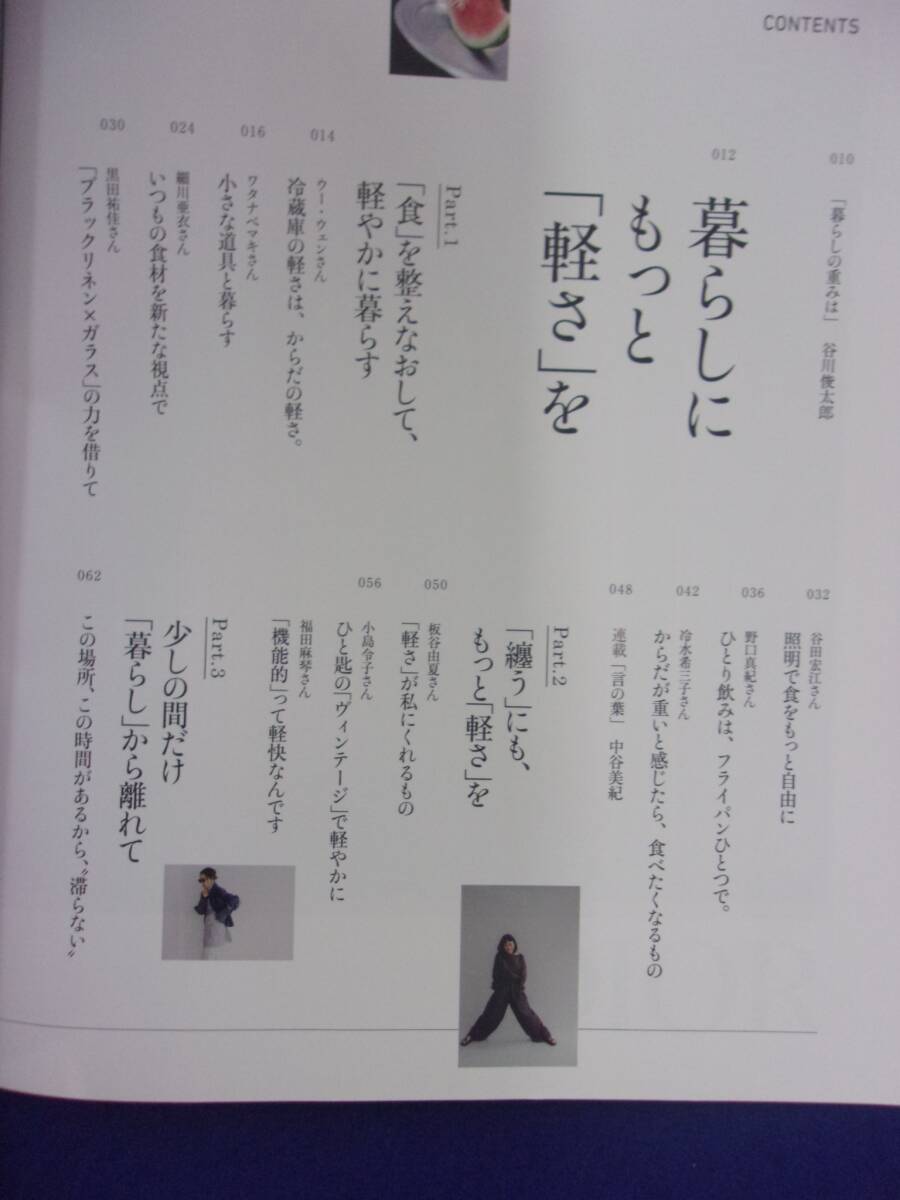 CONTENTS
010
「暮らしの重みは」 谷川俊太郎
012
暮らしに
もっと
「軽さ」を
Part.1
「食」を整えなおして、
軽やかに暮らす
014
ウー・ウェンさん
冷蔵庫の軽さは、からだの軽さ。
016
ワタナベマキさん
小さな道具と暮らす
024
細川亜衣さん
いつもの食材を新たな視点で
030
黒田祐佳さん
「ブラックリネン×ガラス」の力を借りて
032
谷田宏江さん
照明で食をもっと自由に
036
野口真紀さん
ひとり飲みは、フライパンひとつで。
042
冷水希三子さん
からだが重いと感じたら、食べたくなるもの
048
連載「言の葉」 中谷美紀
Part.2
「纏う」にも、
もっと「軽さ」を
050
板谷由夏さん
「軽さ」が私にくれるもの
056
小島令子さん
ひと匙の「ヴィンテージ」で軽やかに
福田麻琴さん
「機能的」って軽快なんです
Part.3
少しの間だけ
「暮らし」から離れて
062
この場所、この時間があるから、〝滞らない〟